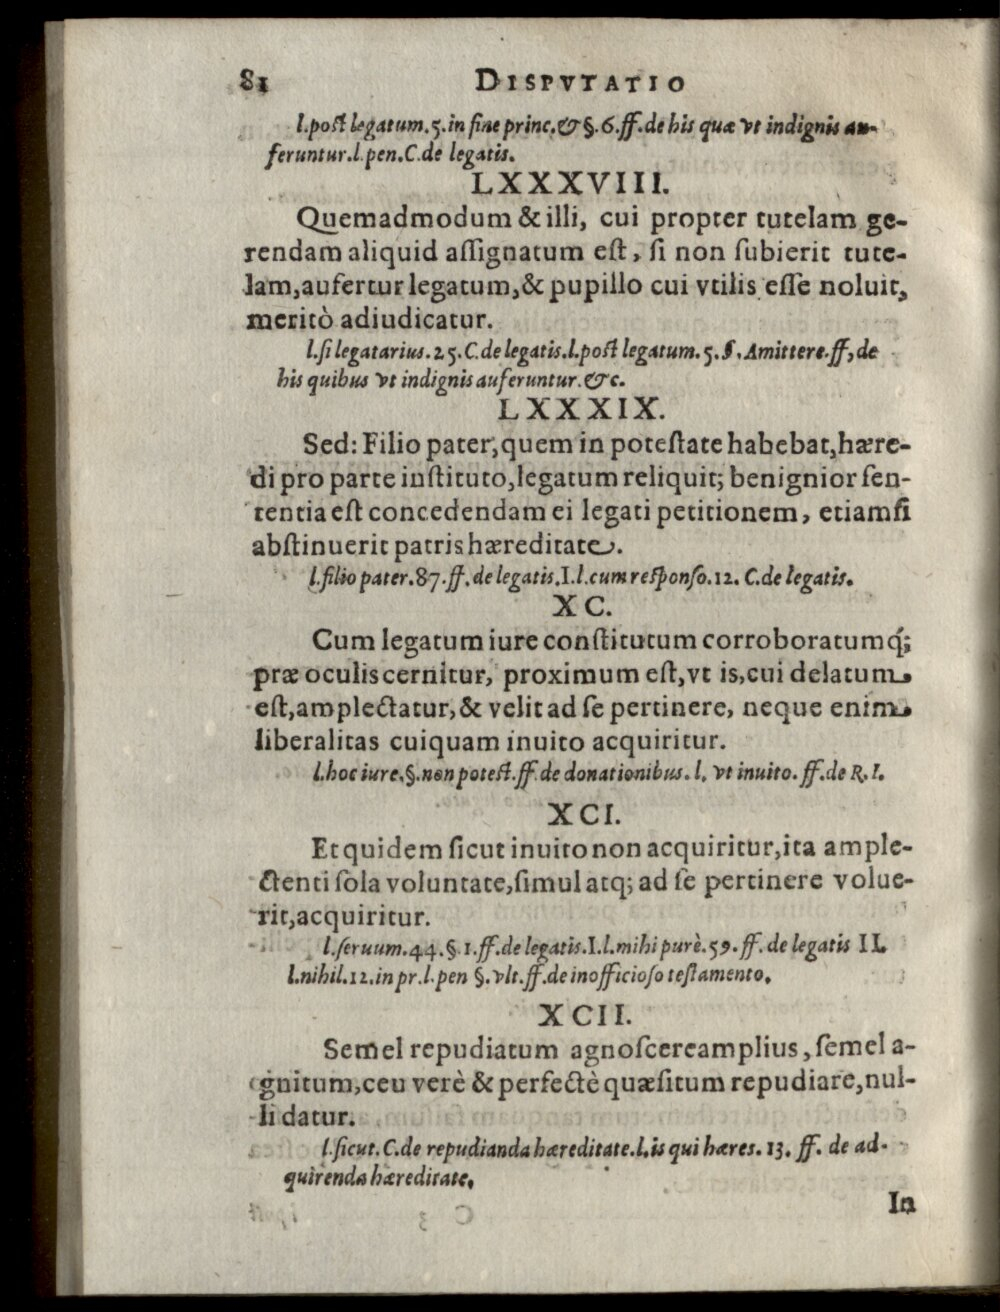 81 DISPVTATIO
l.post legatum.5.in fine princ.& §.6.ff.de his quæ vt indignis au-
feruntur.l.pen.C.de legatis.
LXXXVIII.
Quemadmodum & illi, cui propter tutelam ge-
rendam aliquid aſſignatum eſt, ſi non ſubierit tute-
lam,aufertur legatum,& pupillo cui vtilis eſſe noluit,
meritò adiudicatur.
l.ſi legatarius.25.C.de legatis.l.poſt legatum.5.§.Amittere.ff,de
his quibus vt indignis auferuntur.&c.
LXXXIX.
Sed: Filio pater,quem in poteſtate habebat,hære-
di pro parte inſtituto,legatum reliquit; benignior ſen-
tentia eſt concedendam ei legati petitionem, etiamſi
abſtinuerit patris hæreditate.
l.filio pater.87.ff.de legatis.I.l.cum reſponſo.12. C.de legatis.
XC.
Cum legatum iure conſtitutum corroboratumq́;
præ oculis cernitur, proximum eſt,vt is,cui delatum
eſt,amplectatur,& velit ad ſe pertinere, neque enim
liberalitas cuiquam inuito acquiritur.
l.hoc iure.§.non poteſt.ff.de donationibus. l. vt inuito. ff.de R. I.
XCI.
Et quidem ſicut inuito non acquiritur,ita ample-
ctenti ſola voluntate,ſimul atq; ad ſe pertinere volue-
rit,acquiritur.
l.ſeruum.44.§.1.ff.de legatis.I.l.mihi purè.59.ff. de legatis II.
l.nihil.12.in pr.l.pen §.vlt.ff.de inofficioſo teſtamento.
XCII.
Semel repudiatum agnoſcere amplius, ſemel a-
gnitum,ceu verè & perfectè quæſitum repudiare,nul-
li datur.
l.ſicut. C.de repudianda hæreditate.l.is qui hæres. 13. ff. de ad-
quirenda hæreditate.
In